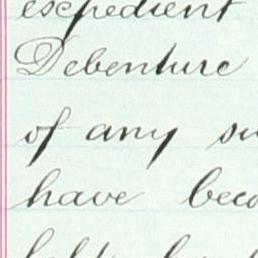 expedient
Debenture
of any su
have beco